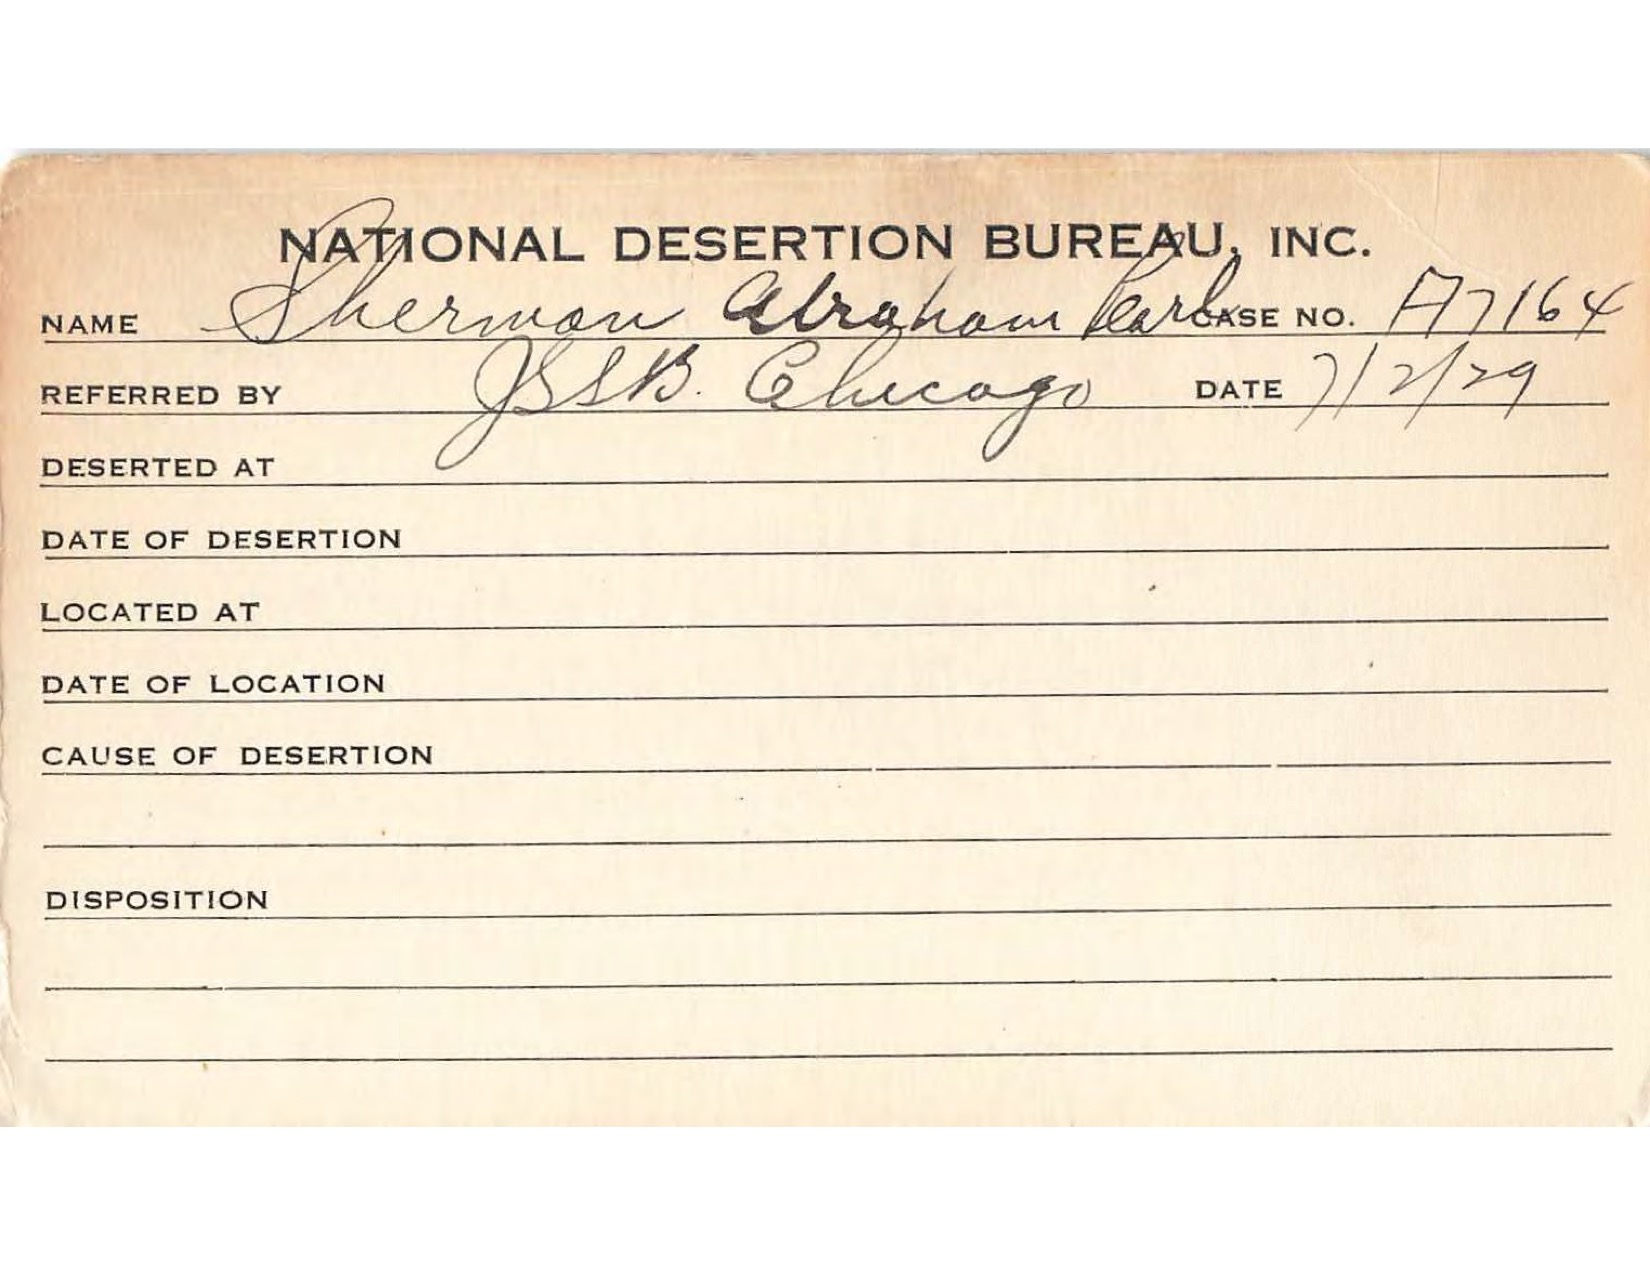 NATIONAL DESERTION BUREAU, INC.
NAME Sherman Abraham Pearl CASE NO. A7164
REFERRED BY JSSB. Chicago DATE 7/2/29
DESERTED AT
DATE OF DESERTION
LOCATED AT
DATE OF LOCATION
CAUSE OF DESERTION
DISPOSITION